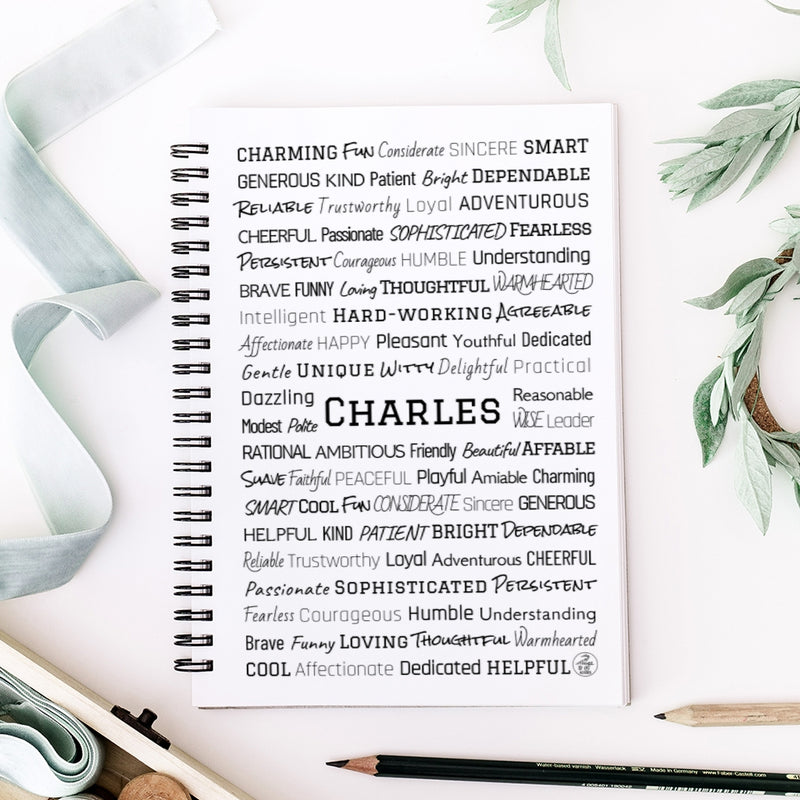 CHARMING Fun Considerate SINCERE SMART
GENEROUS KIND Patient Bright DEPENDABLE
RELIABLE Trustworthy Loyal ADVENTUROUS
CHEERFUL Passionate SOPHISTICATED FEARLESS
PERSISTENT Courageous HUMBLE Understanding
BRAVE FUNNY Loving THOUGHTFUL WARMHEARTED
Intelligent HARD-WORKING AGREEABLE
Affectionate HAPPY Pleasant Youthful Dedicated
Gentle UNIQUE WITTY Delightful Practical
Dazzling Reasonable
Modest Polite CHARLES WISE Leader
RATIONAL AMBITIOUS Friendly Beautiful AFFABLE
SUAVE Faithful PEACEFUL Playful Amiable Charming
SMART COOL FUN CONSIDERATE Sincere GENEROUS
HELPFUL KIND PATIENT BRIGHT DEPENDABLE
Reliable Trustworthy Loyal Adventurous CHEERFUL
Passionate SOPHISTICATED PERSISTENT
Fearless Courageous Humble Understanding
Brave Funny LOVING THOUGHTFUL Warmhearted
COOL Affectionate Dedicated HELPFUL
Water-based varnish Wasserlack Made in Germany www.Faber-Castell.com